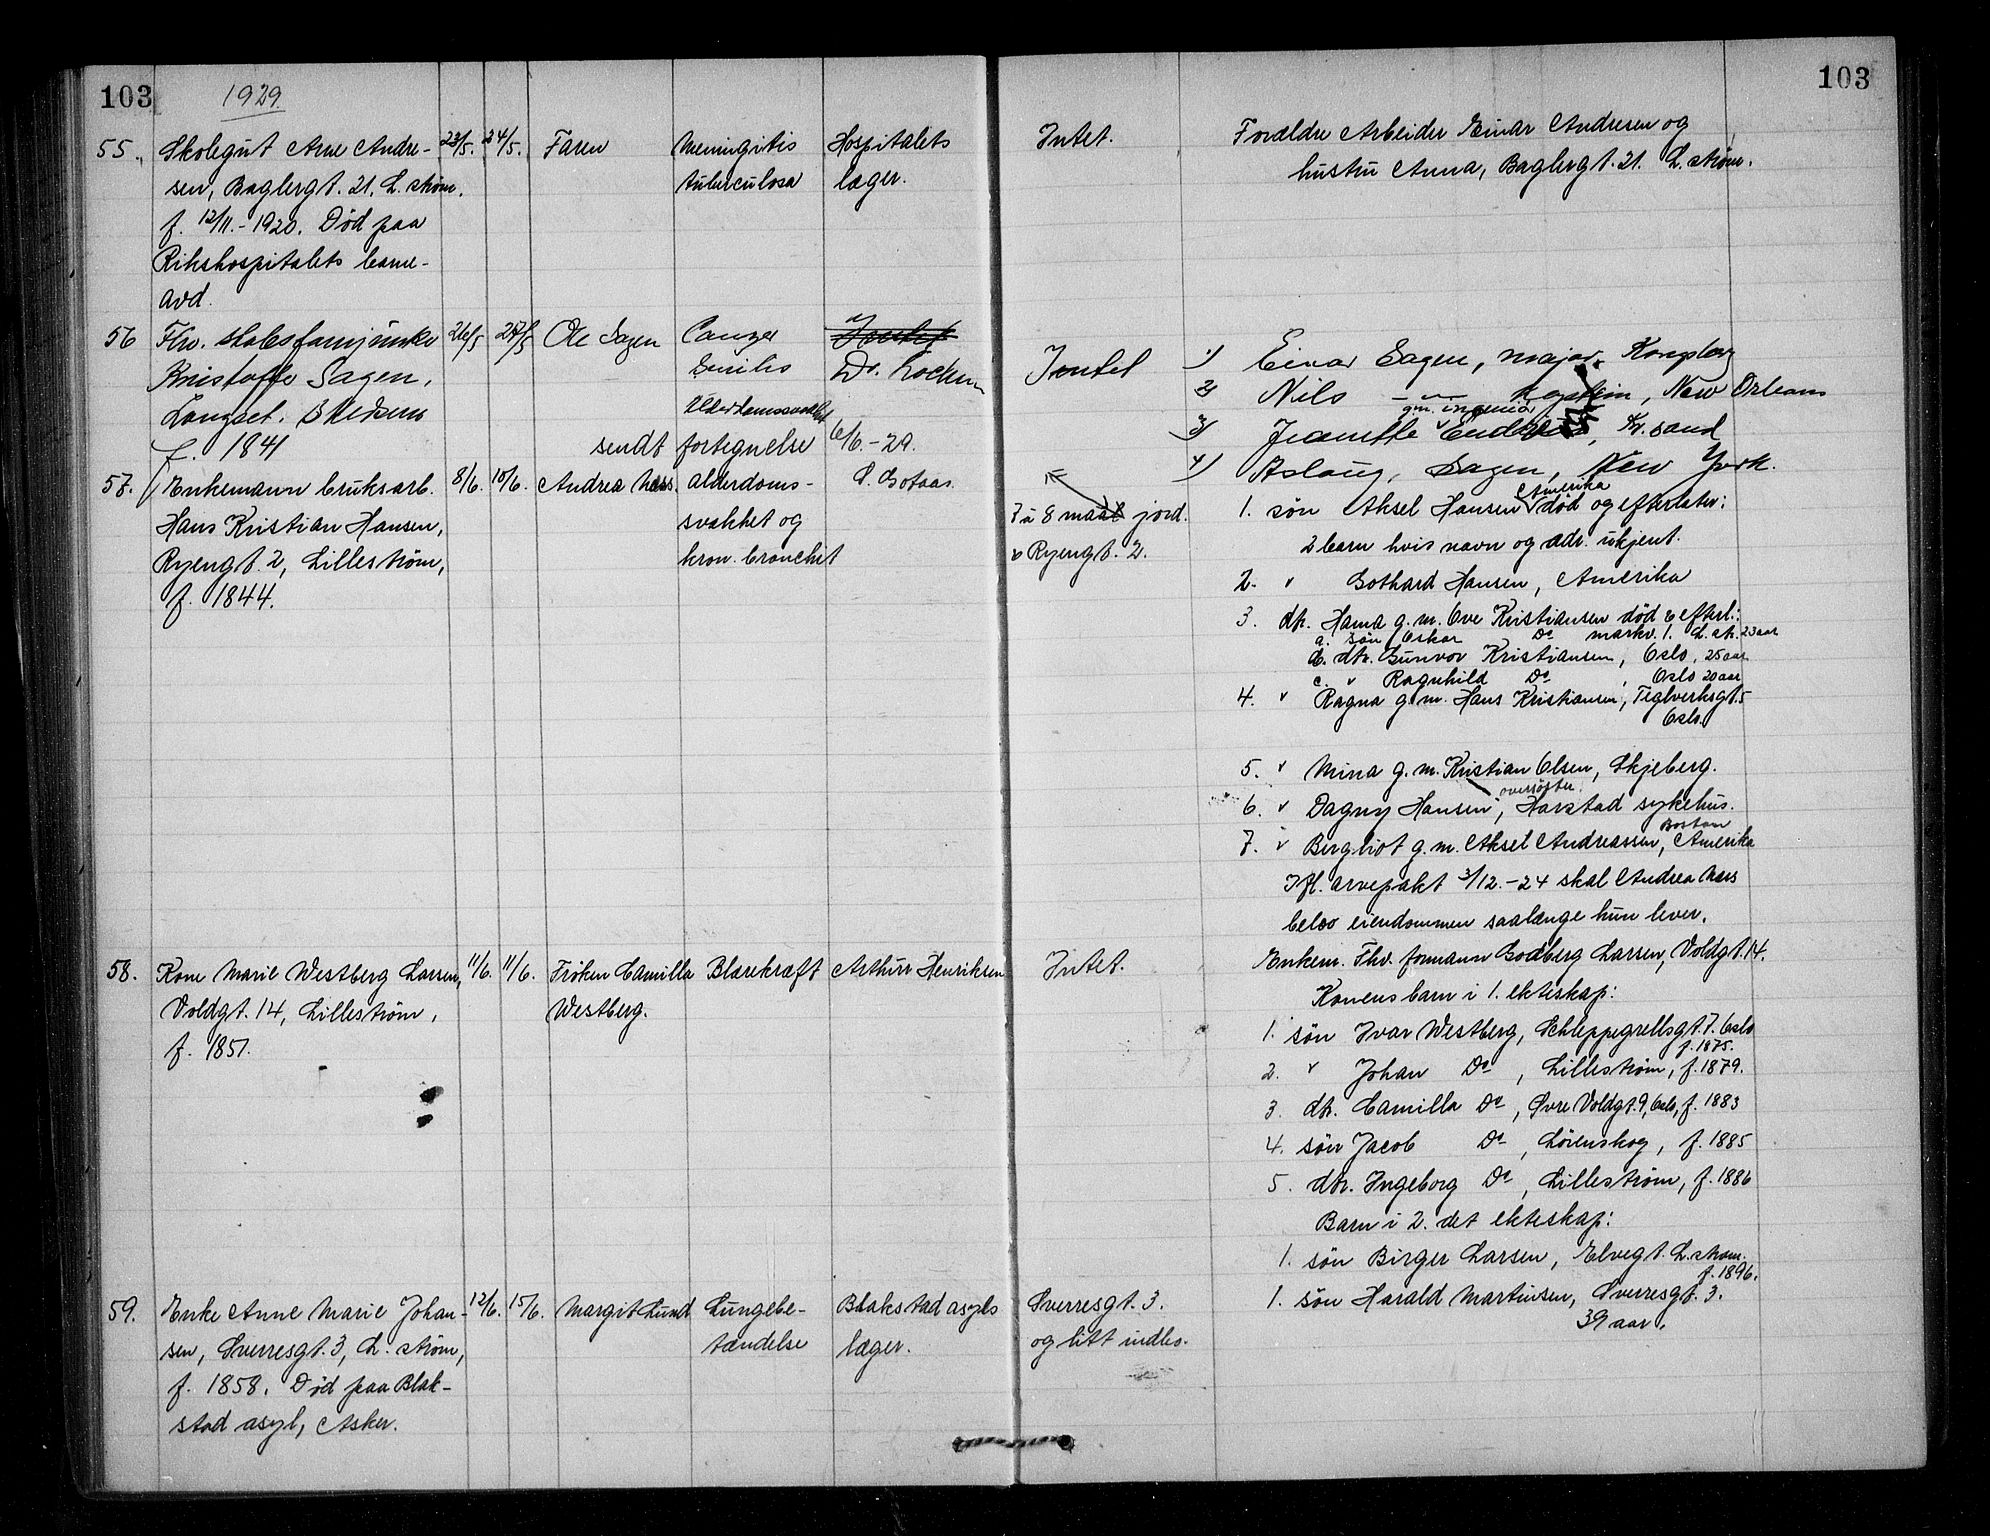 103
1929.
55. Skolegut Arne Andre-
sen, Baglergt. 21. L. strøm.
f. 12/11.-1920. Død paa
Rikshospitalets barne-
avd.
23/5. 24/5. Faren
Meningitis
tuberculosa
Hospitalets
læger.
56 Fhv.
Kristoffe Sagen,
Langset.
f. 1841
26/5 Ole Sagen
Cancer
Dr.
sendt fortegnelse 6/6.-29.
57. Enkemann bruksarb.
Hans Kristian Hansen,
Ryengt. 2, Lillestrøm,
f. 1844.
8/6. 10/6. Andrea
alderdoms-
svakhet og
kron. bronchit
58. Kone Marie Westberg Larsen,
Voldgt. 14, Lillestrøm,
f. 1851.
11/6. 11/6. Frøken Camilla
Westberg.
Blærekræft
Arthur Henriksen
59. Enke Anne Marie Johan-
sen, Sverresgt. 3, L. strøm,
f. 1858. Død paa Blak-
stad asyl, Asker.
12/6. 15/6. Margit Lund
Lungebe-
tændelse
Blakstad asyls
læger.
103
Intet.
Forældre Arbeider Einar Andresen og
hustru Anna, Baglergt. 21. L. strøm.
Intet
1) Einar Sagen, major, Kongsberg
2) Nils -"- kaptein, New Orleans
gm. ingeniør
3) Jeanette, Kr. sand
4) Aslaug, Sagen, New York.
7 à 8 maal jord.
Ryengt. 2.
Amerika
1. søn Aksel Hansen død og efterlater:
2 barn hvis navn og adr. ukjent.
2. " Gothard Hansen, Amerika
3. dtr. Hanna g. m. Ove Kristiansen død & efterl.:
a. søn Oskar Do markv. 1. L. str. 23 aar
b. dtr. Gunvor Kristiansen, Oslo, 25 aar
c. " Ragnhild Do, Oslo 20 aar
4. " Ragna g. m. Hans Kristiansen, Teglverksgt. 5
Oslo.
5. " Mina g. m. Kristian Olsen, Skjeberg.
oversøster.
6. " Dagny Hansen, Harstad sykehus.
Boston
7. " Bergliot g. m. Aksel Andreassen, Amerika
Ifl. arvepakt 3/12.-24 skal Andrea
bebo eiendommen saalænge hun lever.
Intet.
Enkem. Fhv. formann Godberg Larsen, Voldgt. 14.
Konens barn i 1. ekteskap:
1. søn Ivar Westberg, Schleppegrellsgt. 7. Oslo
f. 1875.
2. " Johan Do, Lillestrøm, f. 1879.
3. dtr. Camilla Do, Øvre Voldgt. 9, Oslo, f. 1883
4. søn Jacob Do, Lørenskog, f. 1885
5. dtr. Ingeborg Do, Lillestrøm, f. 1886
Barn i 2. det ekteskap:
1. søn Birger Larsen, Elvegt. L. strøm.
f. 1896.
Sverresgt. 3.
og litt indbo.
1. søn Harald Martinsen, Sverresgt. 3.
39 aar.